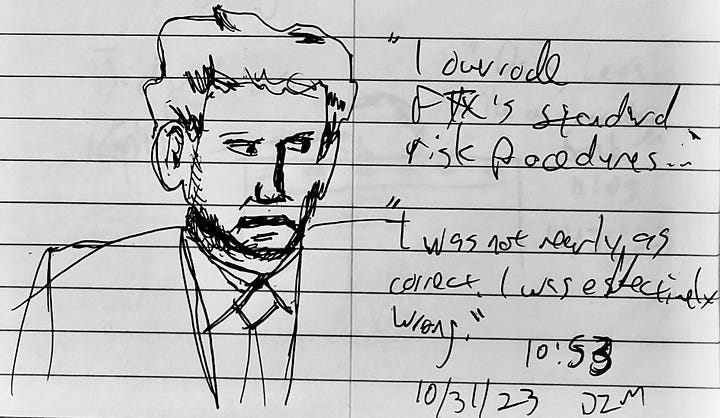 "I overrode
FTX's standard
risk procedures..."
"I was not nearly as
correct. I was effectively
wrong."
10:53
10/31/23 DZM